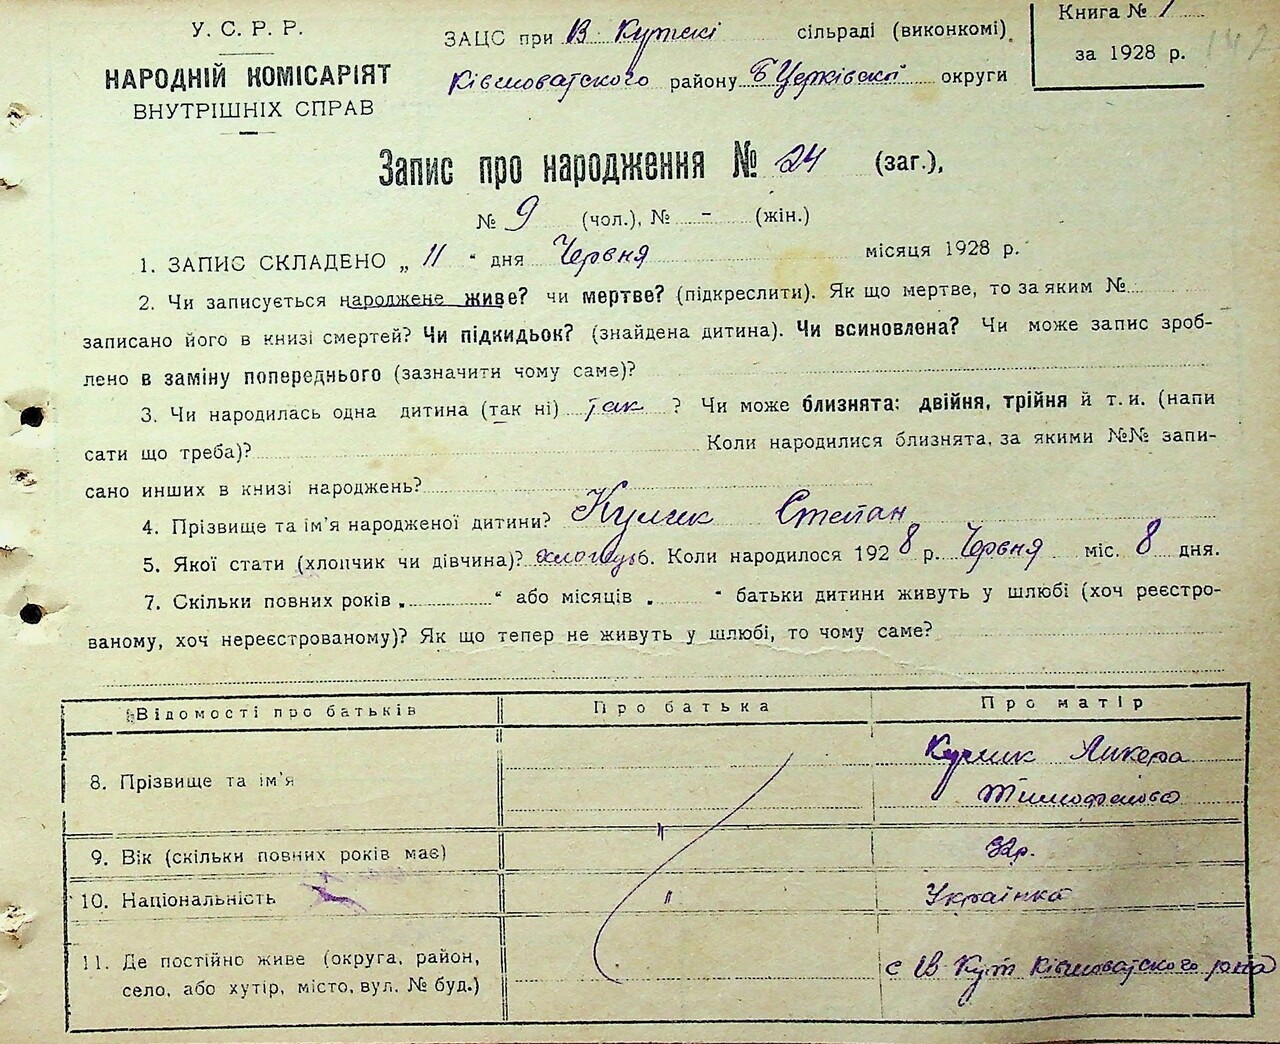 У. С. Р. Р.
НАРОДНІЙ КОМІСАРІЯТ
ВНУТРІШНІХ СПРАВ
ЗАЦС при В Кутскі сільраді (виконкомі)
Ківшоватского району Б Церківскої округи
Книга № 1
за 1928 р. 142
Запис про народження № 24 (заг.),
№ 9 (чол.), № - (жін.)
1. ЗАПИС СКЛАДЕНО „ 11 “ дня Червня місяця 1928 р.
2. Чи записується народжене живе? чи мертве? (підкреслити). Як що мертве, то за яким №
записано його в книзі смертей? Чи підкидьок? (знайдена дитина). Чи всиновлена? Чи може запис зроб-
лено в заміну попереднього (зазначити чому саме)?
3. Чи народилась одна дитина (так ні) так ? Чи може близнята: двійня, трійня й т. и. (напи
сати що треба)? Коли народилися близнята, за якими №№ запи-
сано инших в книзі народжень?
4. Прізвище та ім’я народженої дитини? Кулик Степан
5. Якої стати (хлопчик чи дівчина)? хлопець 6. Коли народилося 1928 р. Червня міс. 8 дня.
7. Скільки повних років „ “ або місяців „ “ батьки дитини живуть у шлюбі (хоч реєстро-
ваному, хоч нереєстрованому)? Як що тепер не живуть у шлюбі, то чому саме?
Відомості про батьків Про батька Про матір
8. Прізвище та ім’я Кулик Ликера
Тимофеюва
9. Вік (скільки повних років має) " 32р.
10. Національність " Українка
11. Де постійно живе (округа, район, с В Кут Ківшоватского рна
село, або хутір, місто, вул. № буд.)